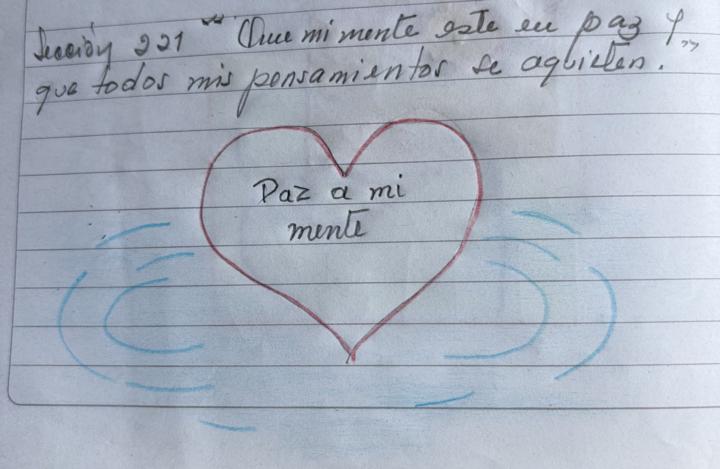 Lección 221 "Que mi mente este en paz y
que todos mis pensamientos se aquieten."
Paz a mi
mente